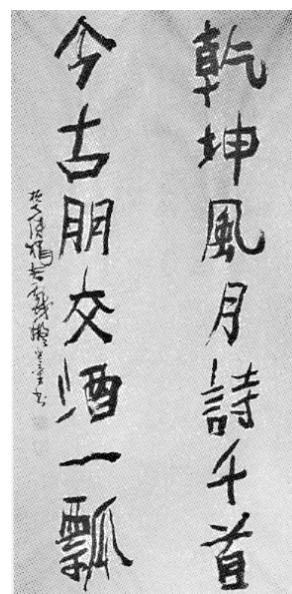 乾坤風月詩千首
今古朋交酒一瓢